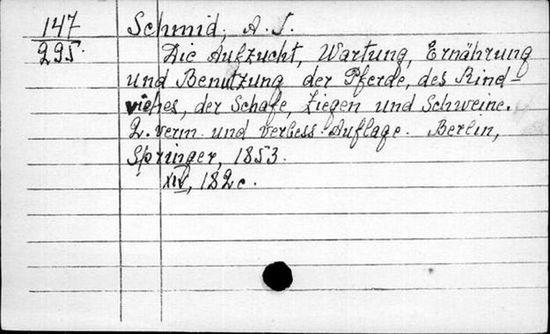 147 Schmid, A. J.
295. Die Aufzucht, Wartung, Ernährung
und Benutzung der Pferde, des Rind-
viehes, der Schafe, Ziegen und Schweine.
2. verm. und verbess. Auflage. Berlin,
Springer, 1853.
XIV, 182 c.